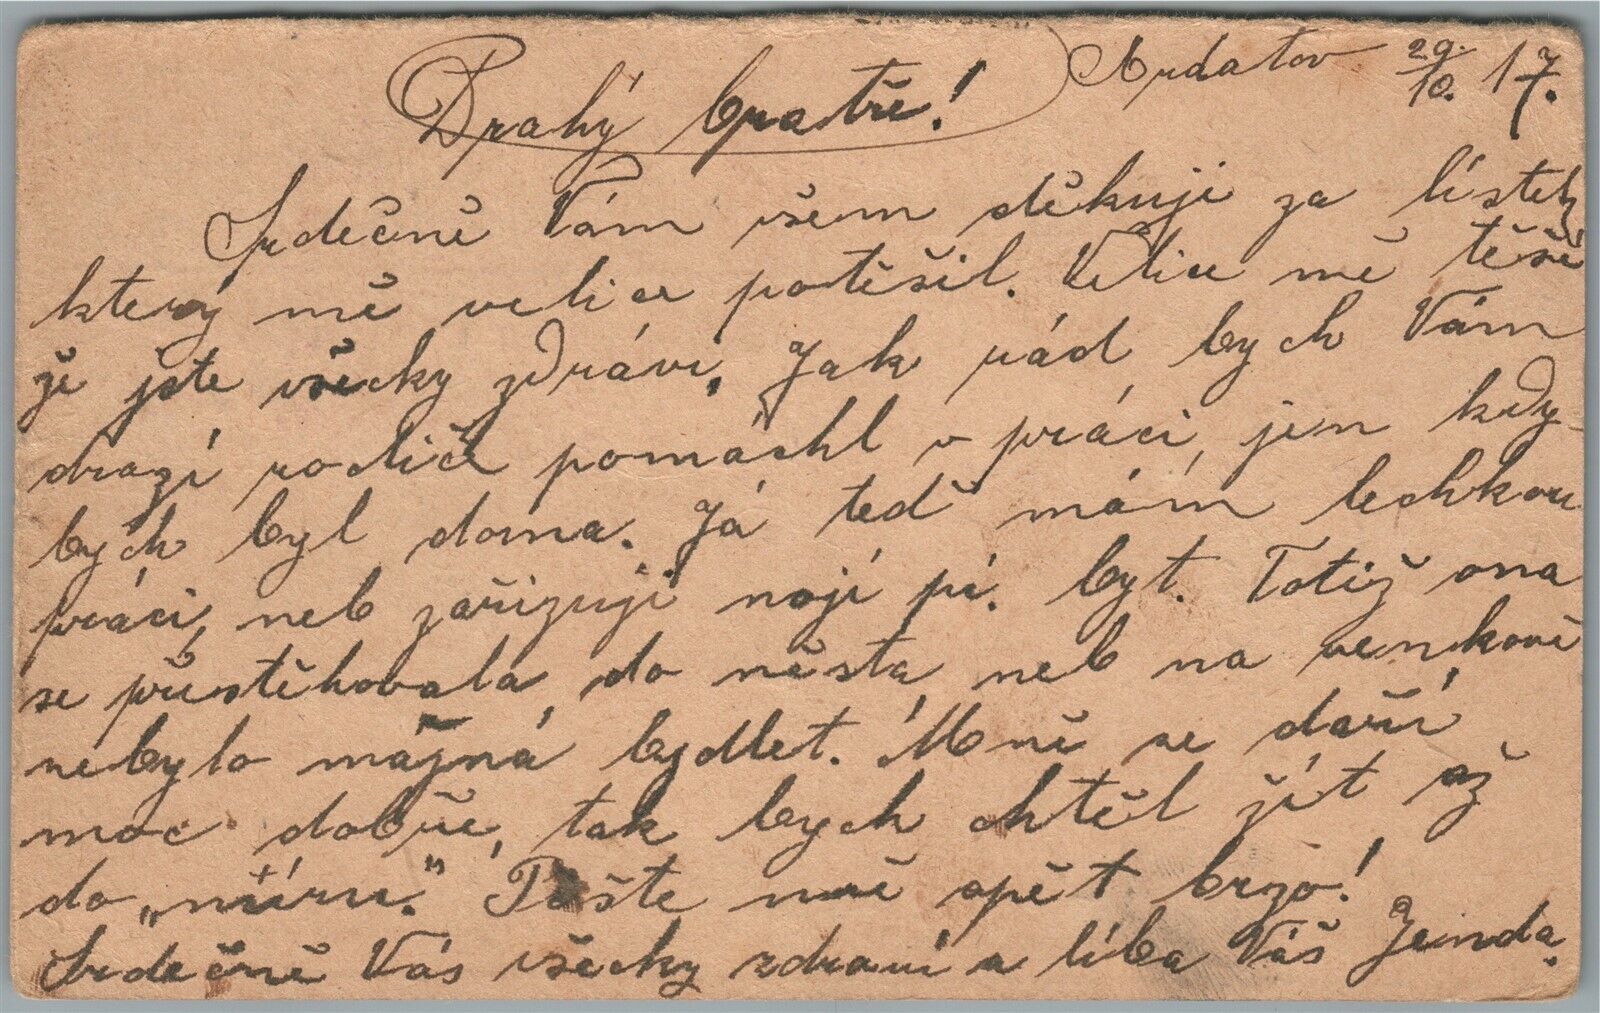 Ardatov 29./10. 17.
Drahý bratře!
Srdečně Vám všem děkuji za lístek
který mě velice potěšil. Velice mě těší
že jste všecky zdrávi. Jak rád bych Vám
drazí rodiče pomáhl v práci, jen kdy-
bych byl doma. Já teď mám lechkou
práci, neb zařizuji nají pí. byt. Totiž ona
se přestěhovala do města, neb na venkově
nebylo mážná bydlet. Mně se daří
moc dobře, tak bych chtěl žít až
do „míru." Pište mě opět brzo!
Srdečně Vás všecky zdraví a líba Váš Jeinda.